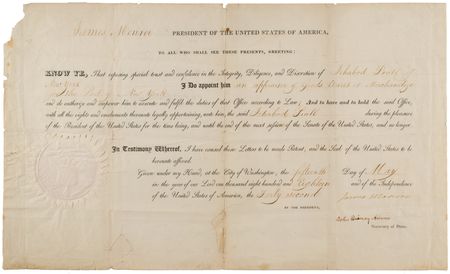 James Monroe PRESIDENT OF THE UNITED STATES OF AMERICA,
TO ALL WHO SHALL SEE THESE PRESENTS, GREETING:
KNOW YE, That reposing special trust and confidence in the Integrity, Diligence, and Discretion of Ichabod Pratt of
New York I Do appoint him an appraiser of Goods Wares & Merchandize
for the Port of New York
and do authorize and empower him to execute and fulfil the duties of that Office according to Law; And to have and to hold the said Office,
with all the rights and emoluments thereunto legally appertaining, unto him, the said Ichabod Pratt during the pleasure
of the President of the United States for the time being, and until the end of the next session of the Senate of the United States, and no longer
In Testimony Whereof, I have caused these Letters to be made Patent, and the Seal of the United States to be
hereunto affixed.
Given under my Hand, at the City of Washington, the fifteenth Day of May
in the year of our Lord one thousand eight hundred and Eighteen and of the Independence
of the United States of America, the Forty Second.
James Monroe
BY THE PRESIDENT,
John Quincy Adams
Secretary of State.